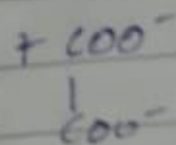 + COO⁻
|
COO⁻